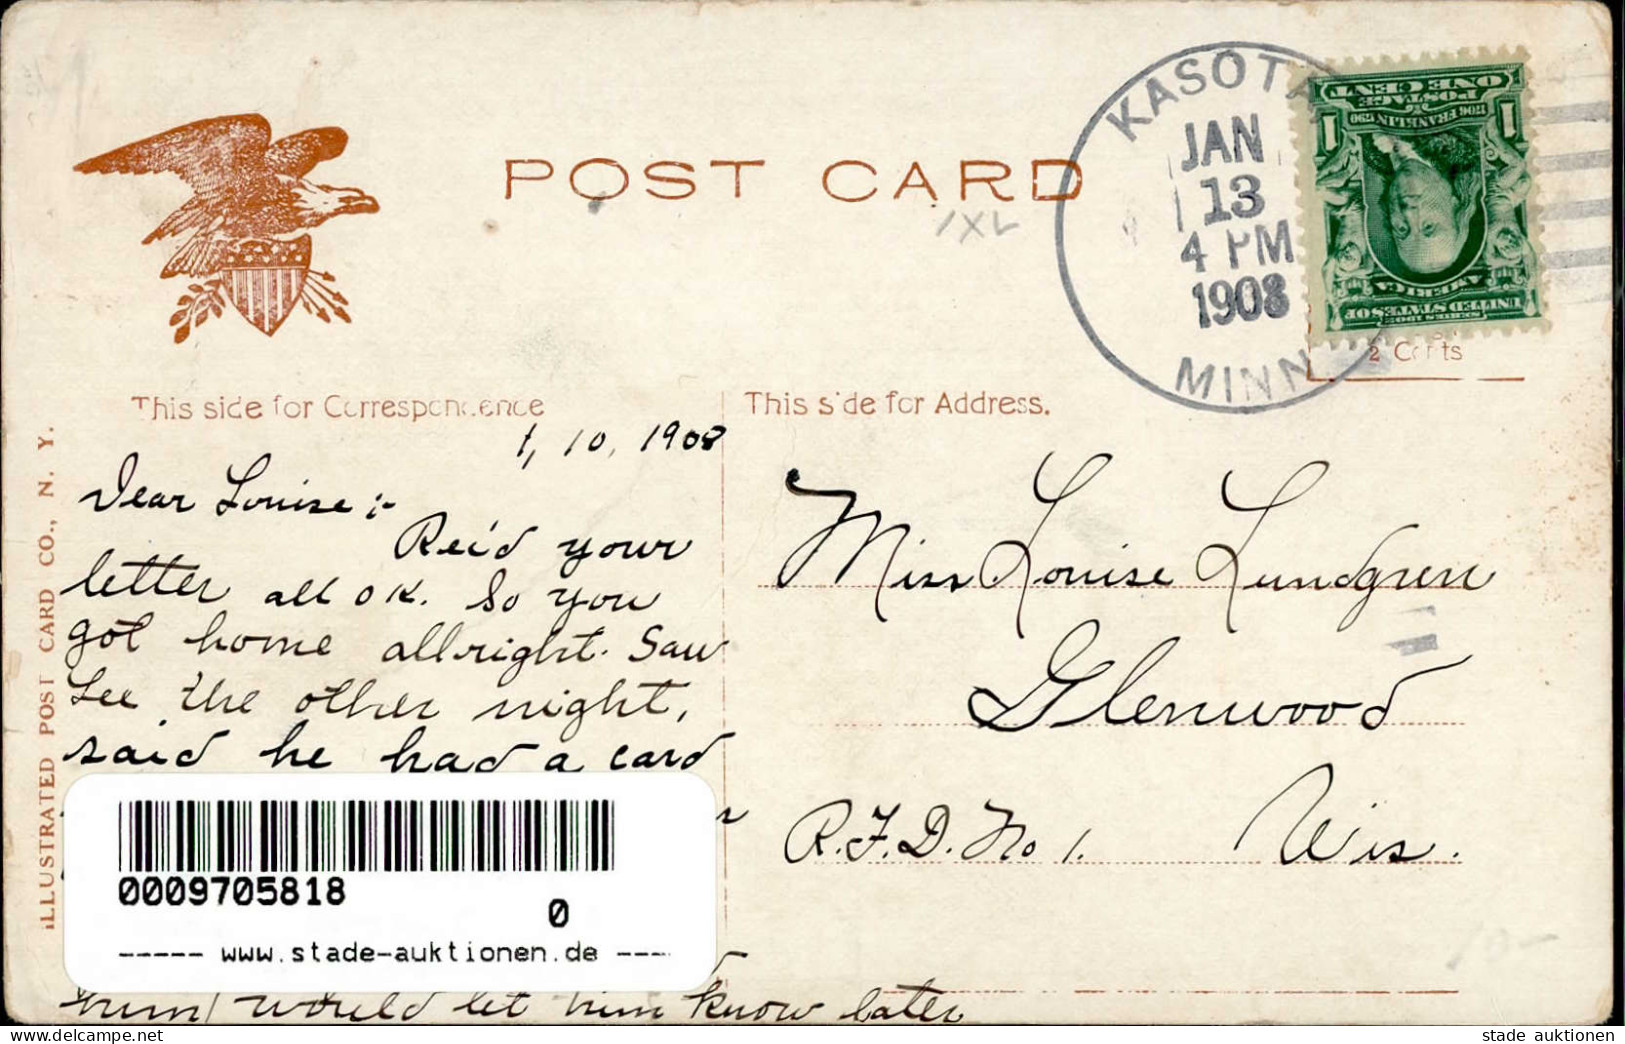 POST CARD
1XL
KASOTA
JAN
13
4 PM
1908
MINN
ONE CENT
POSTAGE
1706 FRANKLIN 1790
1 1
SERIES 1902
UNITED STATES OF
AMERICA
2 Cents
This side for Correspondence
This side for Address.
ILLUSTRATED POST CARD CO., N. Y.
1, 10, 1908
Dear Louise :-
Rec'd your
letter all OK. So you
got home allright. Saw
Lee the other night,
said he had a card
him, would let him know later
Miss Louise Lundgren
Glenwood
R.F.D. No 1. Wis.
10-
0009705818
0
----- www.stade-auktionen.de ----
www.delcampe.net
stade auktionen